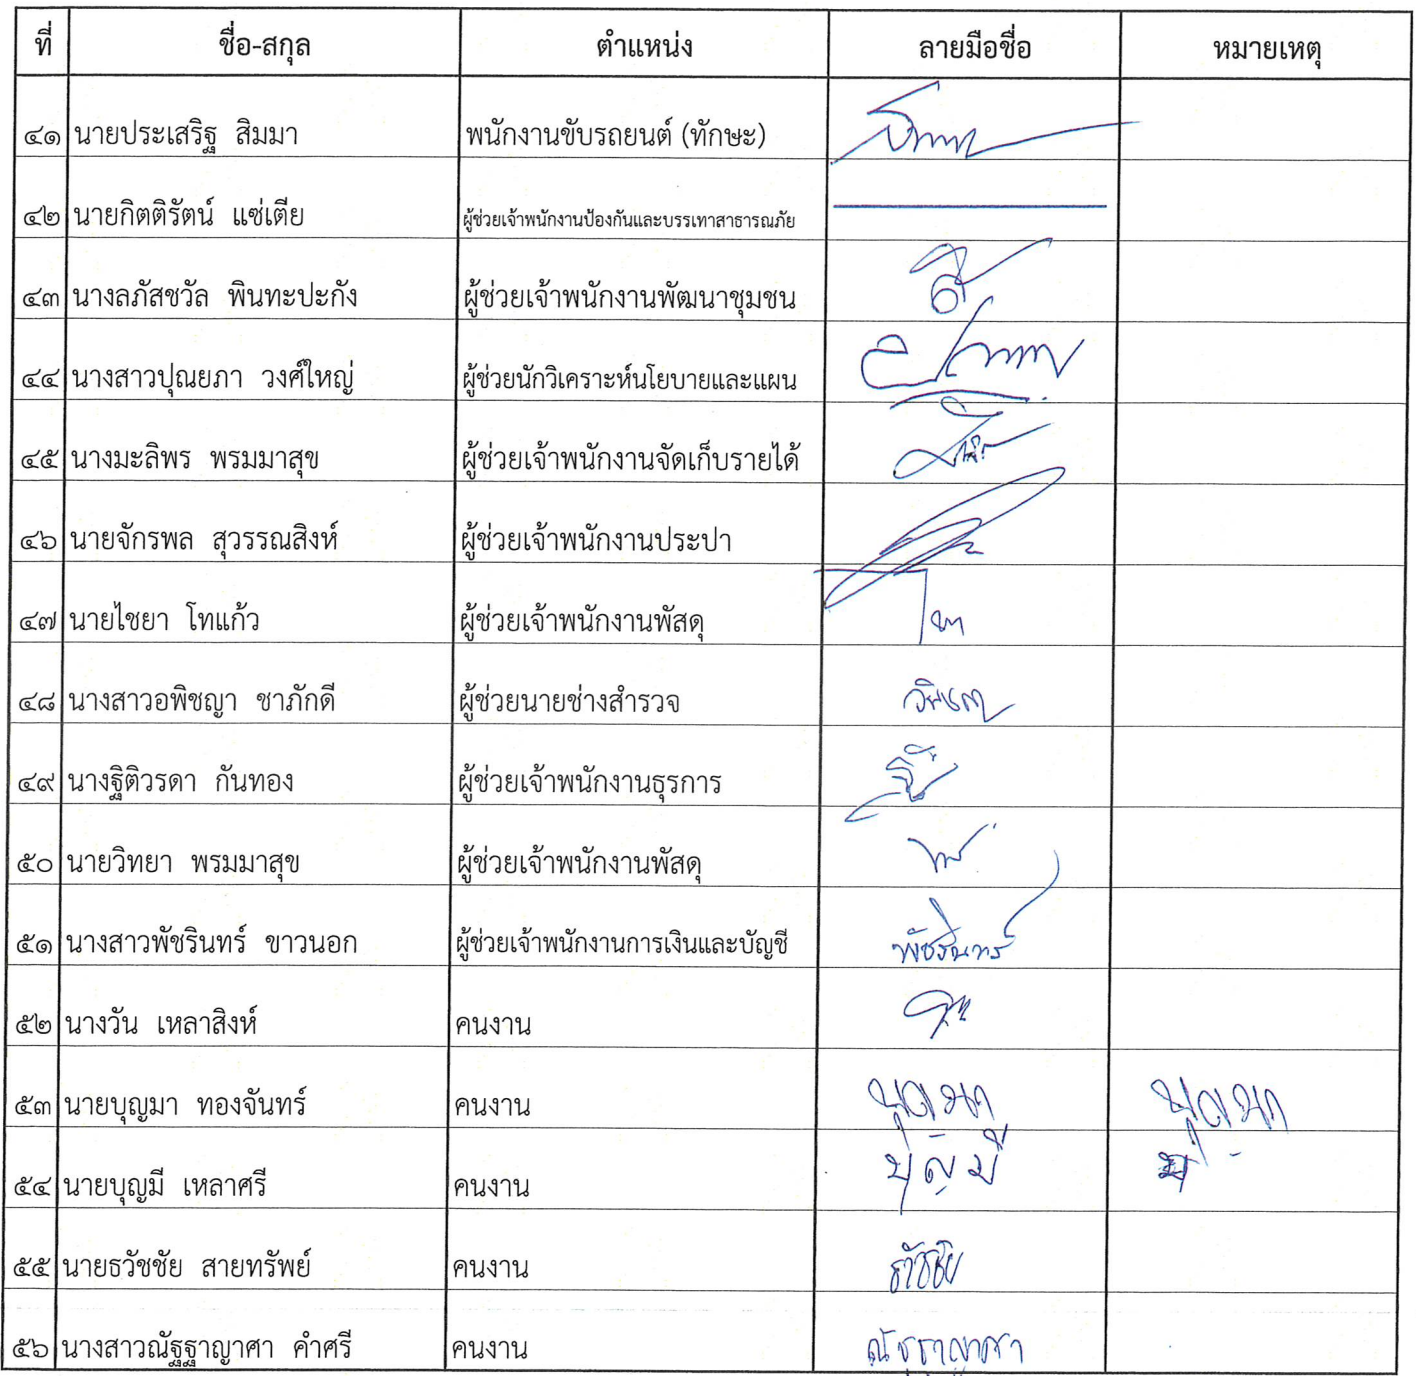 ที่ ชื่อ-สกุล ตำแหน่ง ลายมือชื่อ หมายเหตุ
๔๑ นายประเสริฐ สิมมา พนักงานขับรถยนต์ (ทักษะ)
๔๒ นายกิตติรัตน์ แซ่เตีย ผู้ช่วยเจ้าพนักงานป้องกันและบรรเทาสาธารณภัย
๔๓ นางลภัสชวัล พินทะปะกัง ผู้ช่วยเจ้าพนักงานพัฒนาชุมชน
๔๔ นางสาวปุณยภา วงศ์ใหญ่ ผู้ช่วยนักวิเคราะห์นโยบายและแผน
๔๕ นางมะลิพร พรมมาสุข ผู้ช่วยเจ้าพนักงานจัดเก็บรายได้
๔๖ นายจักรพล สุวรรณสิงห์ ผู้ช่วยเจ้าพนักงานประปา
๔๗ นายไชยา โทแก้ว ผู้ช่วยเจ้าพนักงานพัสดุ
๔๘ นางสาวอพิชญา ชาภักดี ผู้ช่วยนายช่างสำรวจ
๔๙ นางฐิติวรดา กันทอง ผู้ช่วยเจ้าพนักงานธุรการ
๕๐ นายวิทยา พรมมาสุข ผู้ช่วยเจ้าพนักงานพัสดุ
๕๑ นางสาวพัชรินทร์ ขาวนอก ผู้ช่วยเจ้าพนักงานการเงินและบัญชี พัชรินทร์
๕๒ นางวัน เหลาสิงห์ คนงาน
๕๓ นายบุญมา ทองจันทร์ คนงาน
๕๔ นายบุญมี เหลาศรี คนงาน
๕๕ นายธวัชชัย สายทรัพย์ คนงาน ธวัชชัย
๕๖ นางสาวณัฐฐาญาศา คำศรี คนงาน